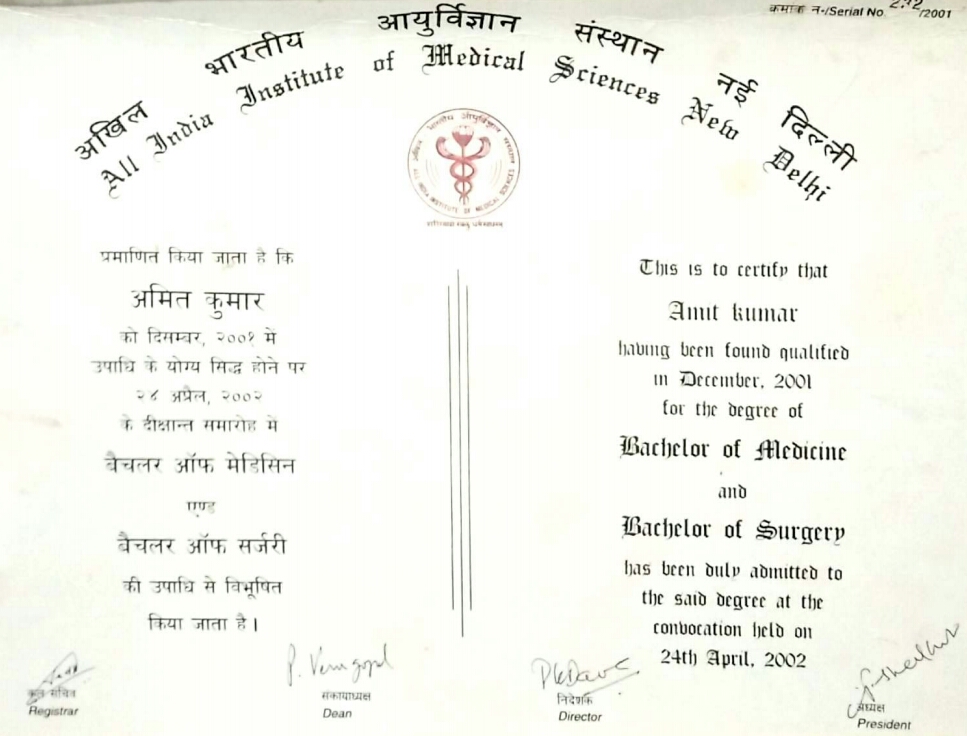 क्रमांक नं॰/Serial No. /2001
अखिल भारतीय आयुर्विज्ञान संस्थान नई दिल्ली
All India Institute of Medical Sciences New Delhi
प्रमाणित किया जाता है कि
अमित कुमार
को दिसम्बर, २००१ में
उपाधि के योग्य सिद्ध होने पर
२४ अप्रैल, २००२
के दीक्षान्त समारोह में
बैचलर ऑफ मेडिसिन
एण्ड
बैचलर ऑफ सर्जरी
की उपाधि से विभूषित
किया जाता है।
This is to certify that
Amit kumar
having been found qualified
in December, 2001
for the degree of
Bachelor of Medicine
and
Bachelor of Surgery
has been duly admitted to
the said degree at the
convocation held on
24th April, 2002
कुल सचिव
Registrar
संकायाध्यक्ष
Dean
निदेशक
Director
अध्यक्ष
President